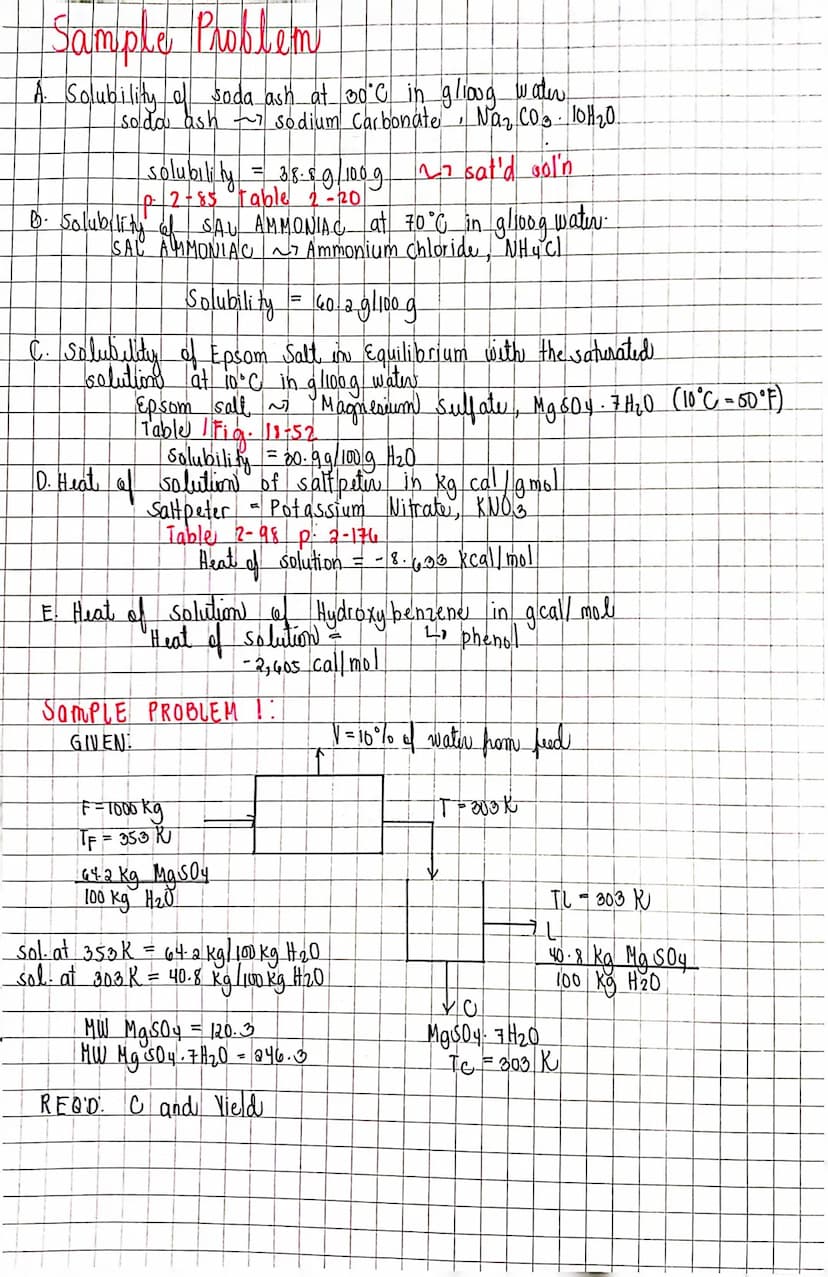 Sample Problem
A. Solubility of soda ash at 30°C in g/100g water
soda ash ~> sodium carbonate, Na2CO3·10H2O.
solubility = 38.8g/100g ~> sat'd sol'n
p. 2-85 Table 2-20
B. Solubility of SAL AMMONIAC at 70°C in g/100g water.
SAL AMMONIAC ~> Ammonium Chloride, NH4Cl
Solubility = 60.2g/100g
C. Solubility of Epsom Salt in Equilibrium with the saturated
solution at 10°C in g/100g water
Epsom salt ~> Magnesium Sulfate, MgSO4·7H2O (10°C = 50°F)
Table / Fig. 18-52
Solubility = 30.9g/100g H2O
D. Heat of solution of saltpeter in kg cal/gmol
Saltpeter = Potassium Nitrate, KNO3
Table 2-98 p. 2-176
Heat of solution = -8.633 kcal/mol
E. Heat of solution of Hydroxybenzene in gcal/mol
Heat of solution = ↳ phenol
-2,605 cal/mol
SAMPLE PROBLEM 1:
GIVEN:
V = 10% of water from feed
F = 1000 kg
TF = 353 K
64.2 kg MgSO4
100 kg H2O
T = 303 K
TL = 303 K
L
40.8 kg MgSO4
100 kg H2O
sol. at 353K = 64.2 kg/100 kg H2O
sol. at 303K = 40.8 kg/100 kg H2O
C
MgSO4·7H2O
Tc = 303 K
MW MgSO4 = 120.3
MW MgSO4·7H2O = 246.3
REQ'D: C and Yield